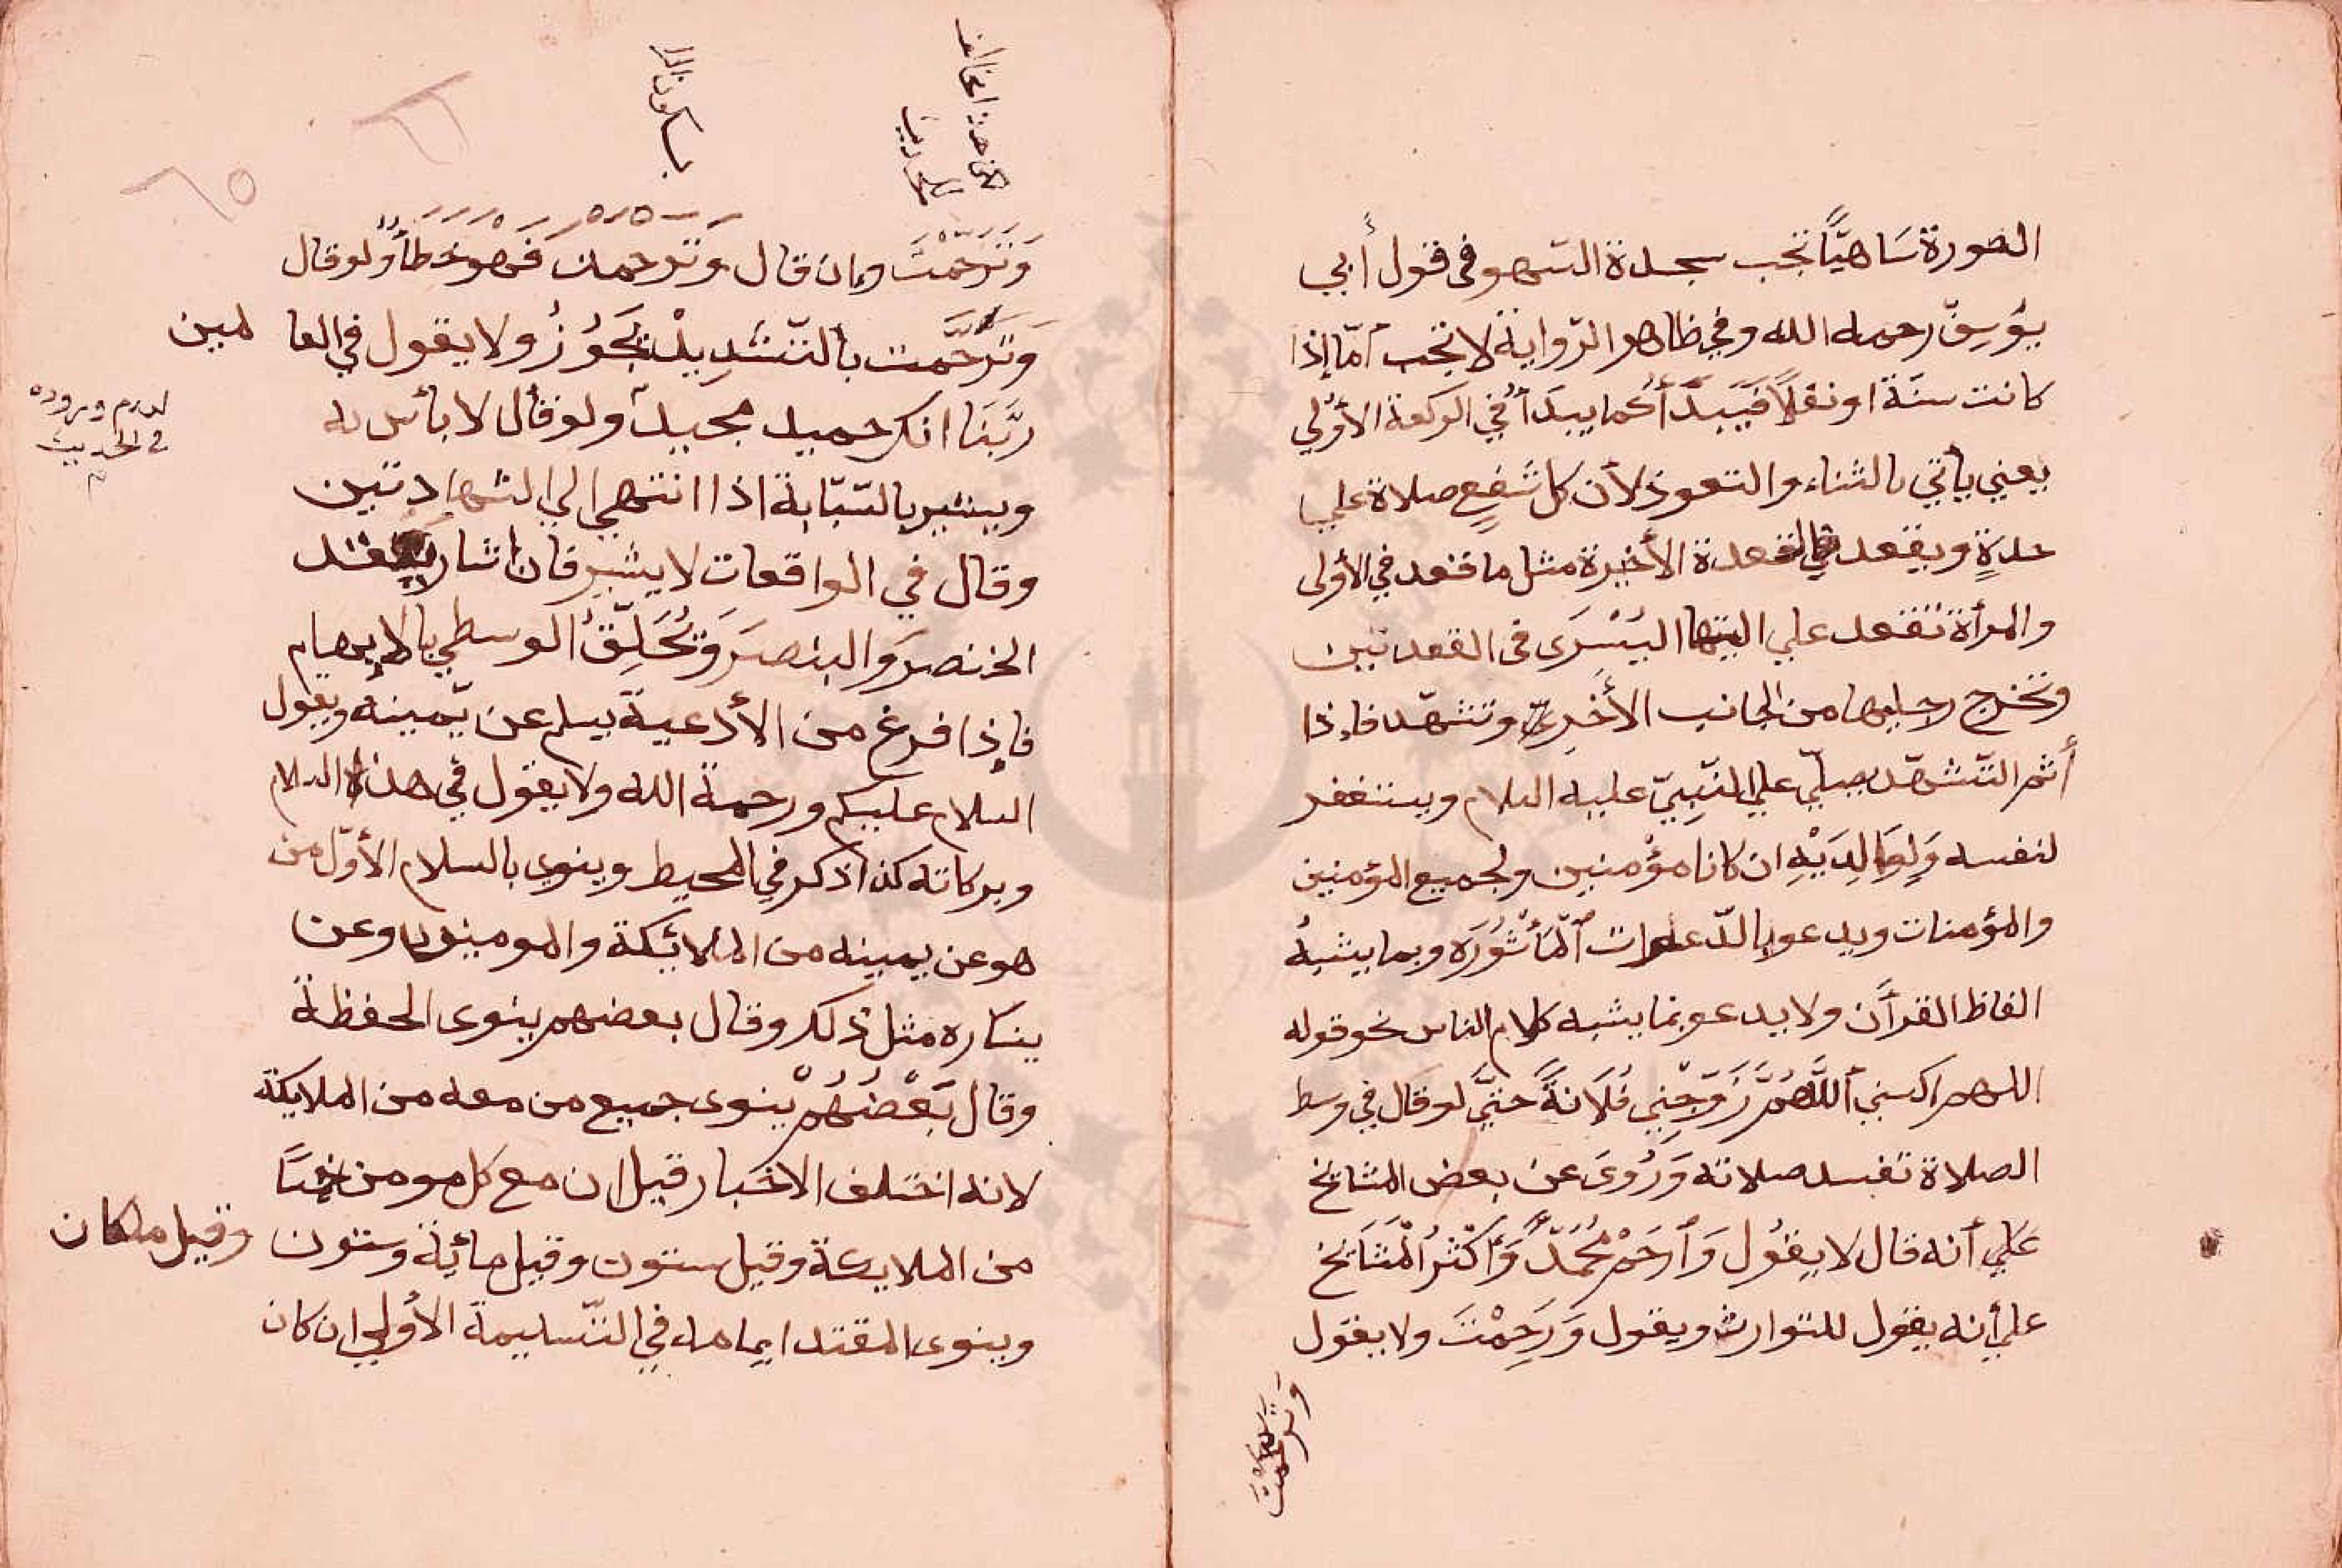 الصورة سَاهيًا تجب سجدة السّهو في قول أبي
يوُسِفَ رحمه الله وفي ظاهر الرّواية لا تجب أمّا إذا
كانت سنّة او نفلًا فيَبدَأ كما يبدَأ في الركعة الأوُلي
يعني يأتي بالثناء والتعوذ لأن كل شَفعٍ صلاة علي
حدةٍ ويقعد في القعدة الأخيرة مثل ما قعد في الأولى
والمرأة تقعد علي اليتها اليُسْرَى في القعدتين
وتخرج رجليها من الجانب الأخِر وتتشهّد فإذا
أتم التّشهّد يصلّي علي النّبِيّ عليه السلام ويستغفر
لنفسه وَلِوَالِدَيْهِ ان كانا مؤمنين ولجميع المؤمنين
والمؤمنات ويدعو بالدّعوات ٱلْمَأثُورَه وبما يشبهُ
الفاظ القرأن ولا يدعو بما يشبه كلام الناس نحو قوله
اللهم اكسني ٱللَّهُمَّ زَوِّجْنِي فُلَانَةً حتيَّ لو قال في وسط
الصلاة تفسد صلاته وَرُوىَ عن بعض المشايخ
عَلي أنه قال لا يقوُل وَٱرحَمْ مُحُمَّدًا وَأكثرُ الْمَشَايخ
علي أنه يقول للتوارث ويقول وَرَحِمْتَ ولا يقول
وَتَرَحَّمْتَ
وَتَرَحَّمْتَ وإن قال وَتَرحمت فَهو خَطَأٌ ولو قال
وَتَرَحَّمت بالتّشدِيدْ يَجَوُزُ ولا يقول في العا لمين
ربَّنَا انك حميد مجيد ولو قال لا بأس به
لعدم وروده
في الحديث
ويشير بالسّبّابة اذا انتهي الي الشهادتين
وقال في الواقعات لا يشير فان اشار يعقد
الخنصرَ والبنصرَ وَيُحَلِّقُ الوسطي بالإبهام
فإذا فرغ من الأدعية يسلم عن يّمينه ويقول
السلام عليكم ورحمة الله ولا يقول في هذا السلام
وبركاته كذا ذكر في المحيط وينوي بالسلام الأوّل من
هو عن يمينه من الملائكة والمومنين وعن
يساره مثل ذلك وقال بعضهم ينوى الحفظة
وقال بَعْضُهُمْ ينوى جميع من معه من الملايكة
لانه اختلف الاخبار قيل ان مع كل مومن خمسًا
من الملايكة وقيل ستون وقيل مائة وستون
وينوى المقتد إمامه في التّسليمة الأولي ان كان